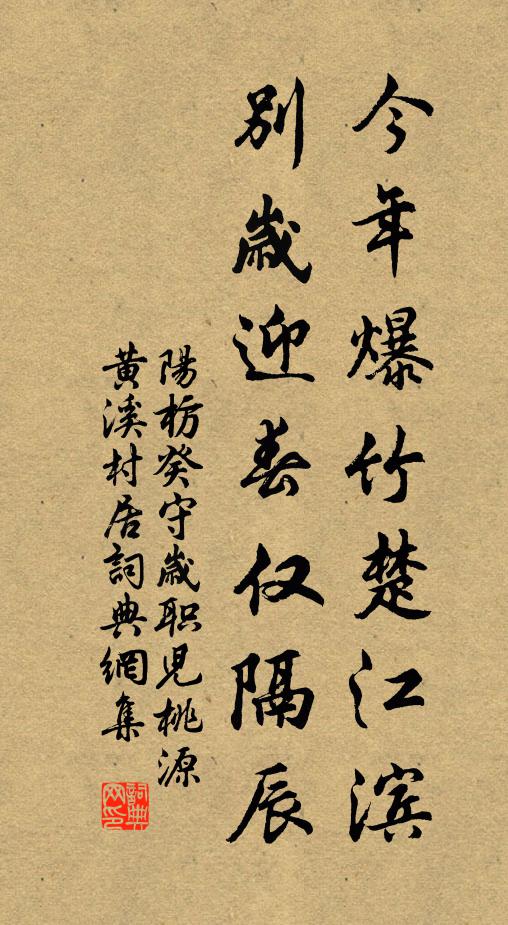 今年爆竹楚江滨
別歲迎春仅隔辰
陽枋癸守歲职児桃源
黄溪村居詞典網集
詞典
网印